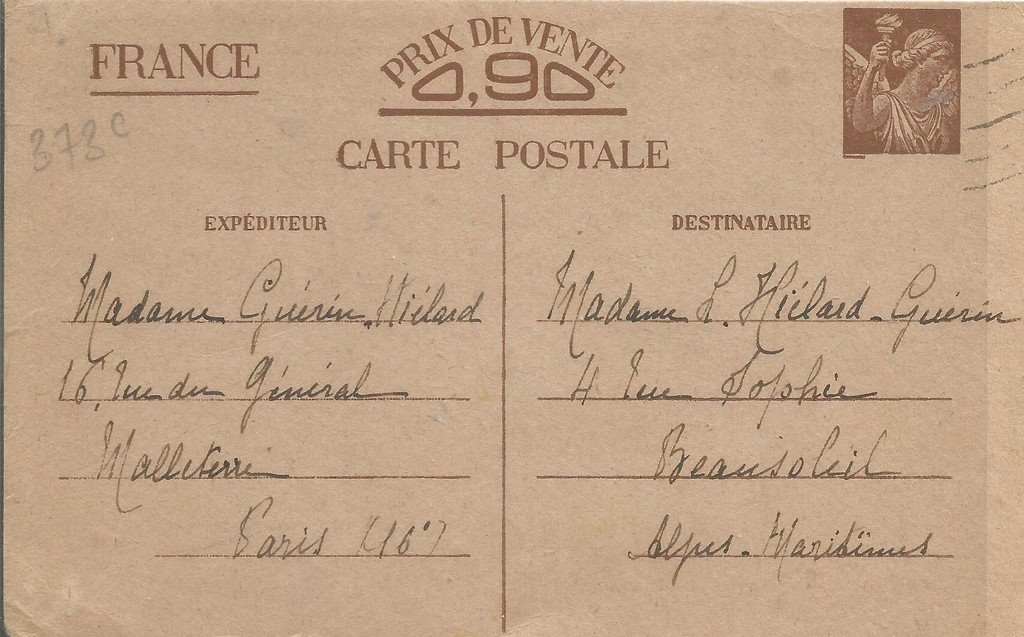 FRANCE
PRIX DE VENTE
0,90
CARTE POSTALE
373c
EXPÉDITEUR
Madame Guérin-Hiélard
16, rue du Général
Malleterre
Paris (16e)
DESTINATAIRE
Madame L. Hiélard-Guérin
4 rue Sophie
Beausoleil
Alpes-Maritimes